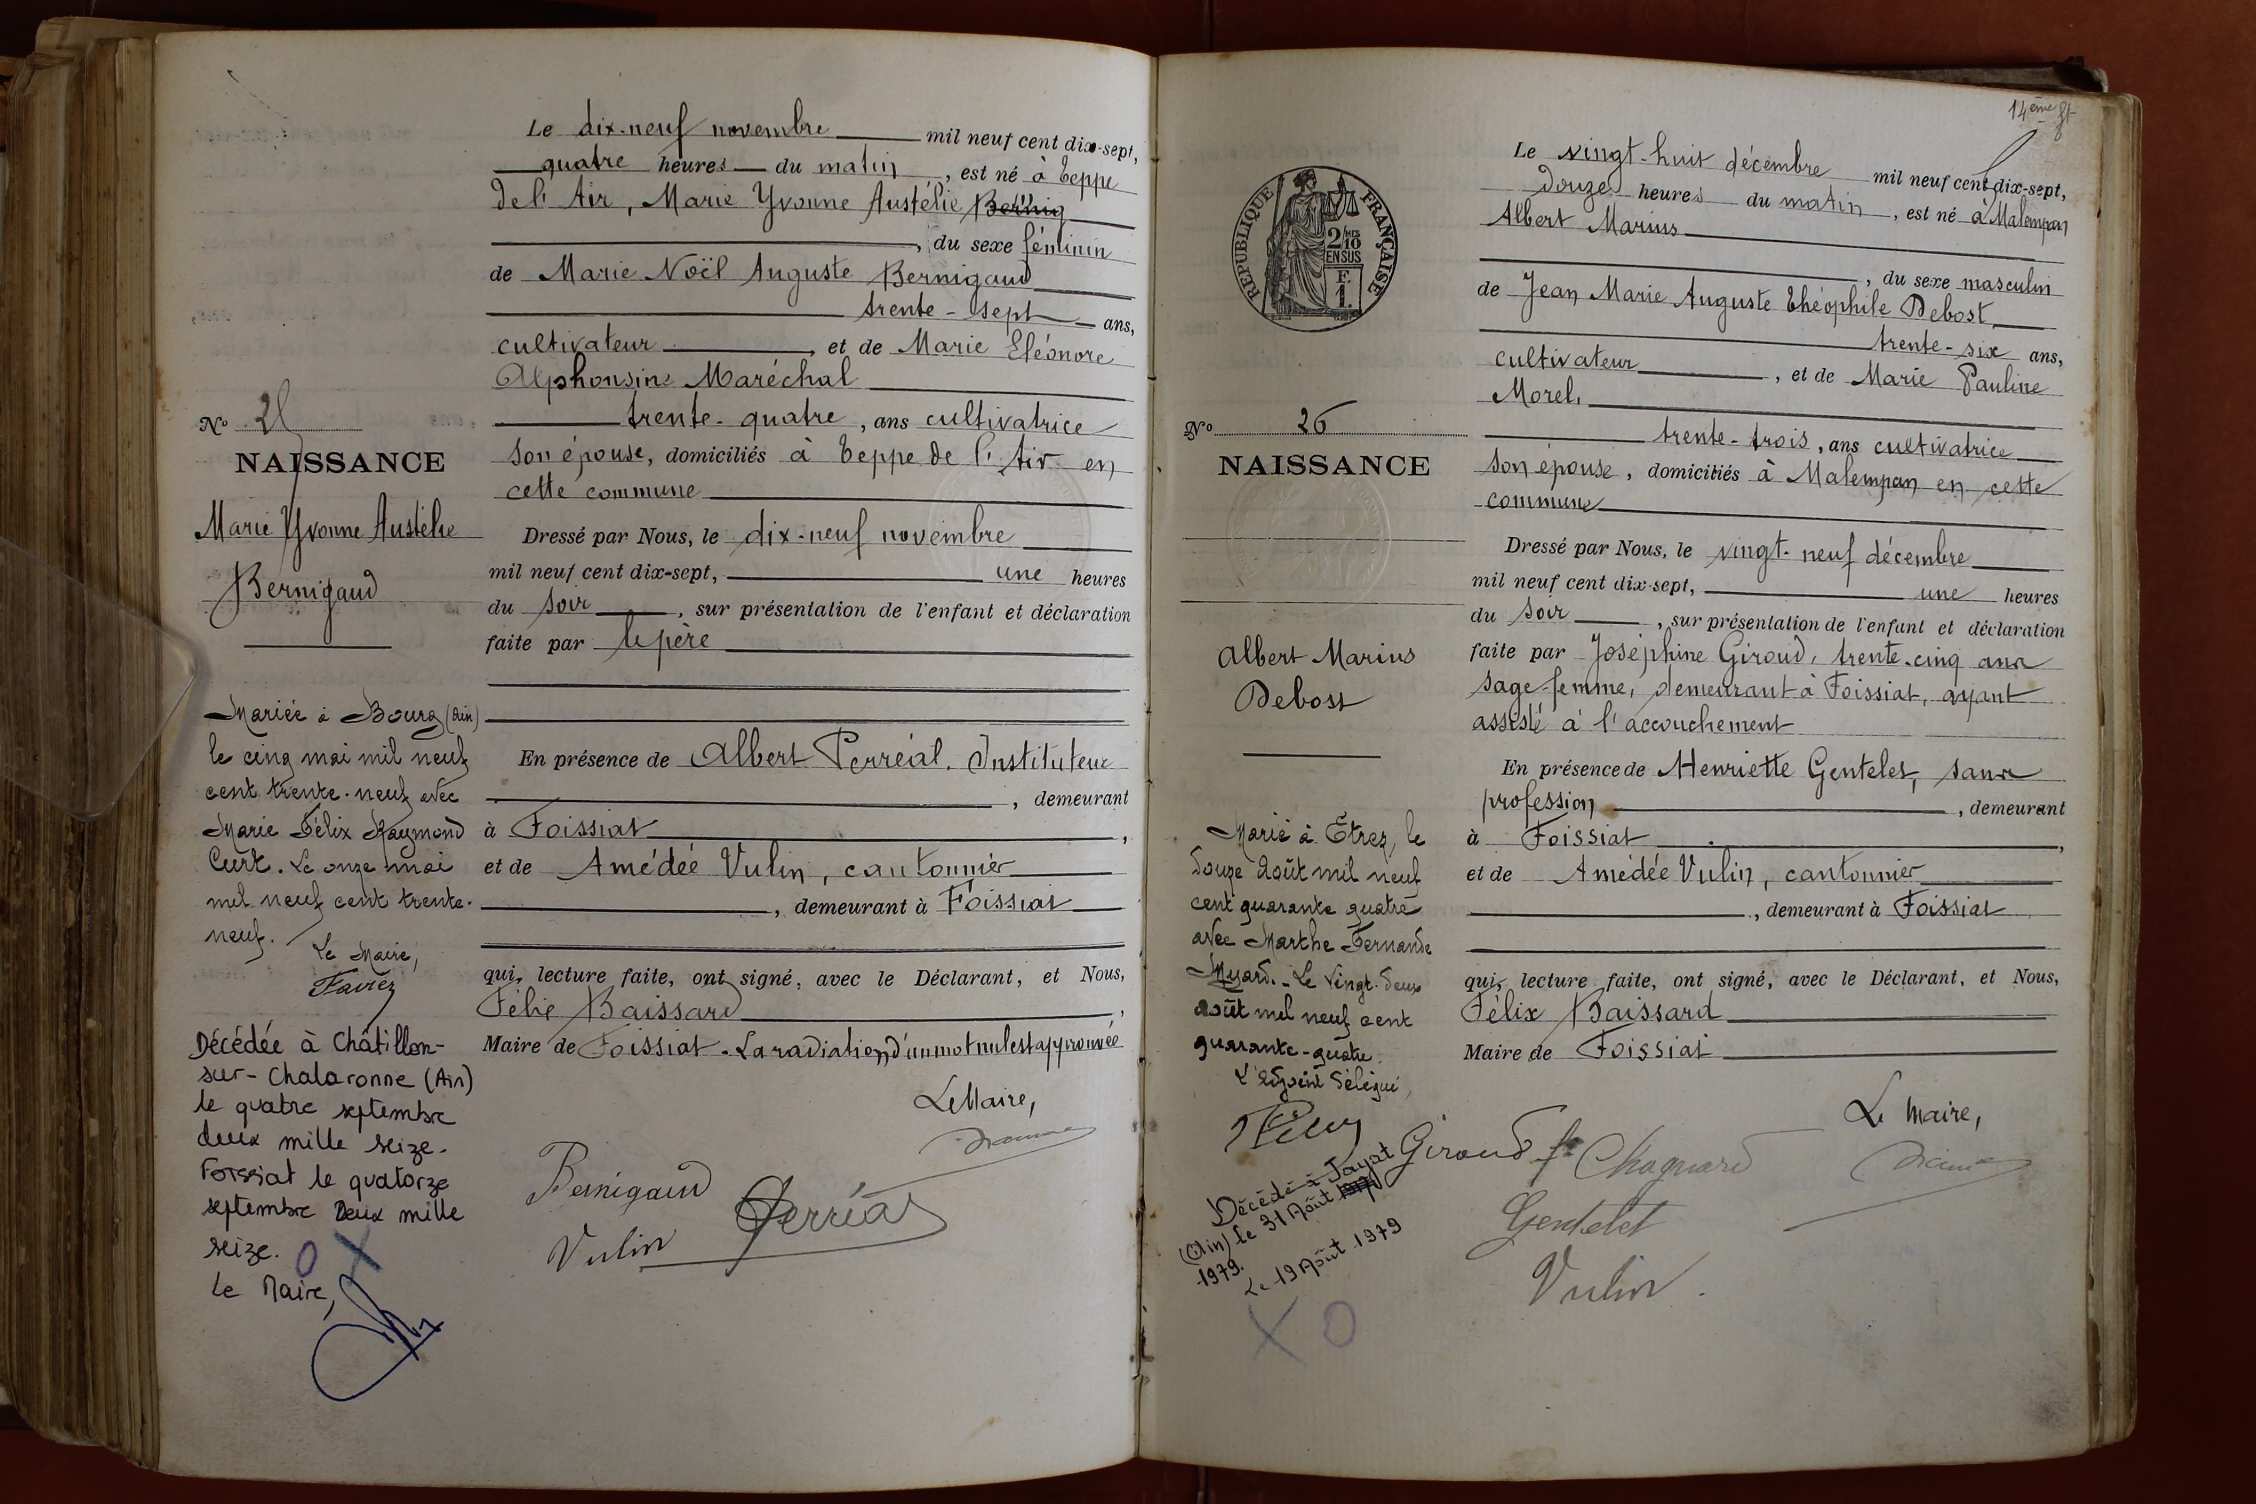 Le dix-neuf novembre mil neuf cent dix-sept,
quatre heures du matin, est né à Teppe
de l'Air, Marie Yvonne Austélie Bernig
, du sexe féminin
de Marie Noël Auguste Bernigaud
trente-sept ans,
cultivateur, et de Marie Eléonore
Alphonsine Maréchal
trente-quatre, ans cultivatrice
son épouse, domiciliés à Teppe de l'Air en
cette commune
Nº 25
NAISSANCE
Marie Yvonne Austélie
Bernigaud
Dressé par Nous, le dix-neuf novembre
mil neuf cent dix-sept, une heures
du soir, sur présentation de l'enfant et déclaration
faite par le père
En présence de Albert Perréal, Instituteur
, demeurant
à Foissiat,
et de Amédée Vulin, cantonnier
, demeurant à Foissiat
qui, lecture faite, ont signé, avec le Déclarant, et Nous,
Félix Baissard,
Maire de Foissiat. La radiation d'un mot nul est approuvée
Le Maire,
Bernigaud
Perréal
Vulin
Mariée à Bourg (Ain)
le cinq mai mil neuf
cent trente-neuf avec
Marie Félix Raymond
Curt. Le onze mai
mil neuf cent trente-
neuf.
Le Maire,
Décédée à Châtillon-
sur-Chalaronne (Ain)
le quatre septembre
deux mille seize.
Foissiat le quatorze
septembre Deux mille
seize.
O X
Le Maire,
14ème ft
Le vingt-huit décembre mil neuf cent dix-sept,
douze heures du matin, est né à Malempan
Albert Marius
, du sexe masculin
de Jean Marie Auguste Théophile Debost,
trente-six ans,
cultivateur, et de Marie Pauline
Morel,
trente-trois, ans cultivatrice
son épouse, domiciliés à Malempan en cette
commune
RÉPUBLIQUE FRANÇAISE
2/10 MES
EN SUS
F
1.
Nº 26
NAISSANCE
Albert Marius
Debost
Dressé par Nous, le vingt-neuf décembre
mil neuf cent dix-sept, une heures
du soir, sur présentation de l'enfant et déclaration
faite par Joséphine Giroud, trente-cinq ans
sage-femme, demeurant à Foissiat, ayant
assisté à l'accouchement
En présence de Henriette Gentelet, sans
profession, demeurant
à Foissiat,
et de Amédée Vulin, cantonnier
, demeurant à Foissiat
qui, lecture faite, ont signé, avec le Déclarant, et Nous,
Félix Baissard
Maire de Foissiat
Le Maire,
Giroud fe Chagnard
Gentelet
Vulin.
Marié à Etrez, le
douze Août mil neuf
cent quarante quatre
avec Marthe Fernande
Myard. - Le vingt-deux
août mil neuf cent
quarante-quatre.
L'Adjoint délégué,
Décédé à Jayat
(Ain) le 31 Août
1979.
Le 19 Août 1979
X O